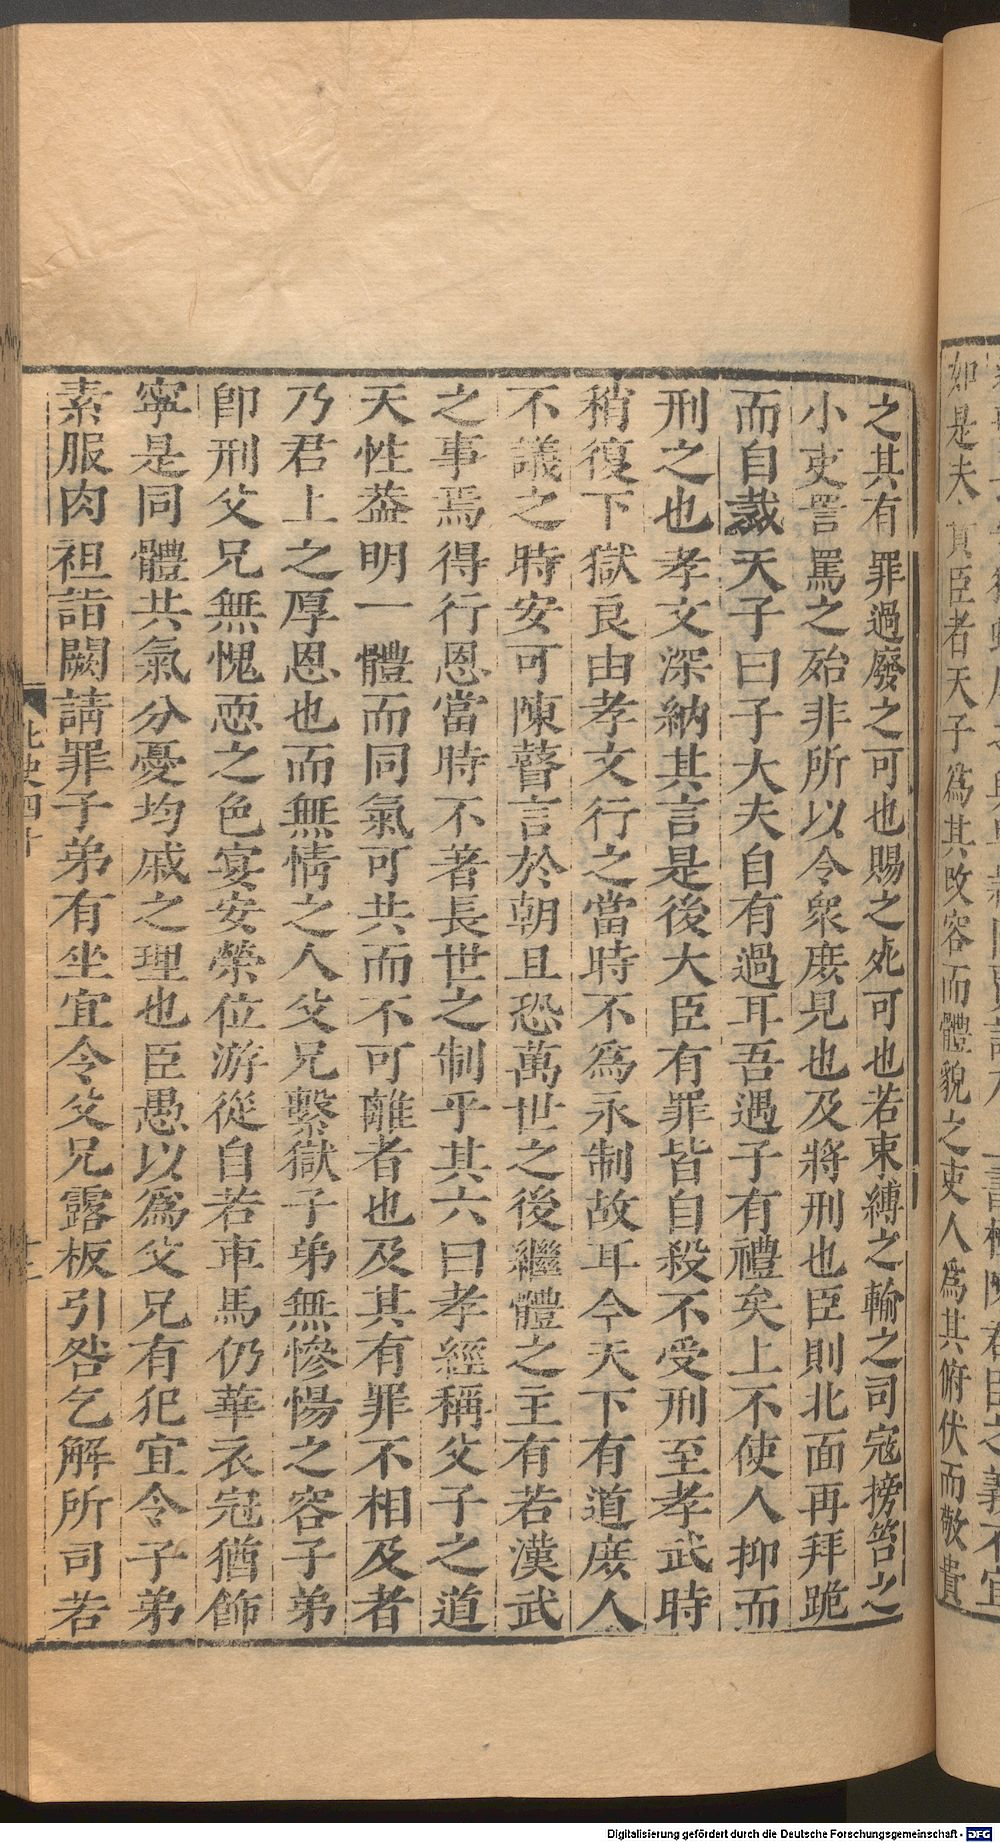 如是夫
貞臣者天子爲其改容而體貌之吏人爲其俯伏而敬貴
之其有罪過廢之可也賜之死可也若束縛之輸之司寇搒笞之
小吏詈罵之殆非所以令衆庶見也及將刑也臣則北面再拜跪
而自裁天子曰子大夫自有過耳吾遇子有禮矣上不使人抑而
刑之也孝文深納其言是後大臣有罪皆自殺不受刑至孝武時
稍復下獄良由孝文行之當時不爲永制故耳今天下有道庶人
不議之時安可陳瞽言於朝且恐萬世之後繼體之主有若漢武
之事焉得行恩當時不著長世之制乎其六曰孝經稱父子之道
天性蓋明一體而同氣可共而不可離者也及其有罪不相及者
乃君上之厚恩也而無情之人父兄繫獄子弟無慘惕之容子弟
卽刑父兄無愧恧之色宴安榮位游從自若車馬仍華衣冠猶飾
寧是同體共氣分憂均戚之理也臣愚以爲父兄有犯宜令子弟
素服肉袒詣闕請罪子弟有坐宜令父兄露板引咎乞解所司若
北史四十
十二
Digitalisierung gefördert durch die Deutsche Forschungsgemeinschaft - DFG